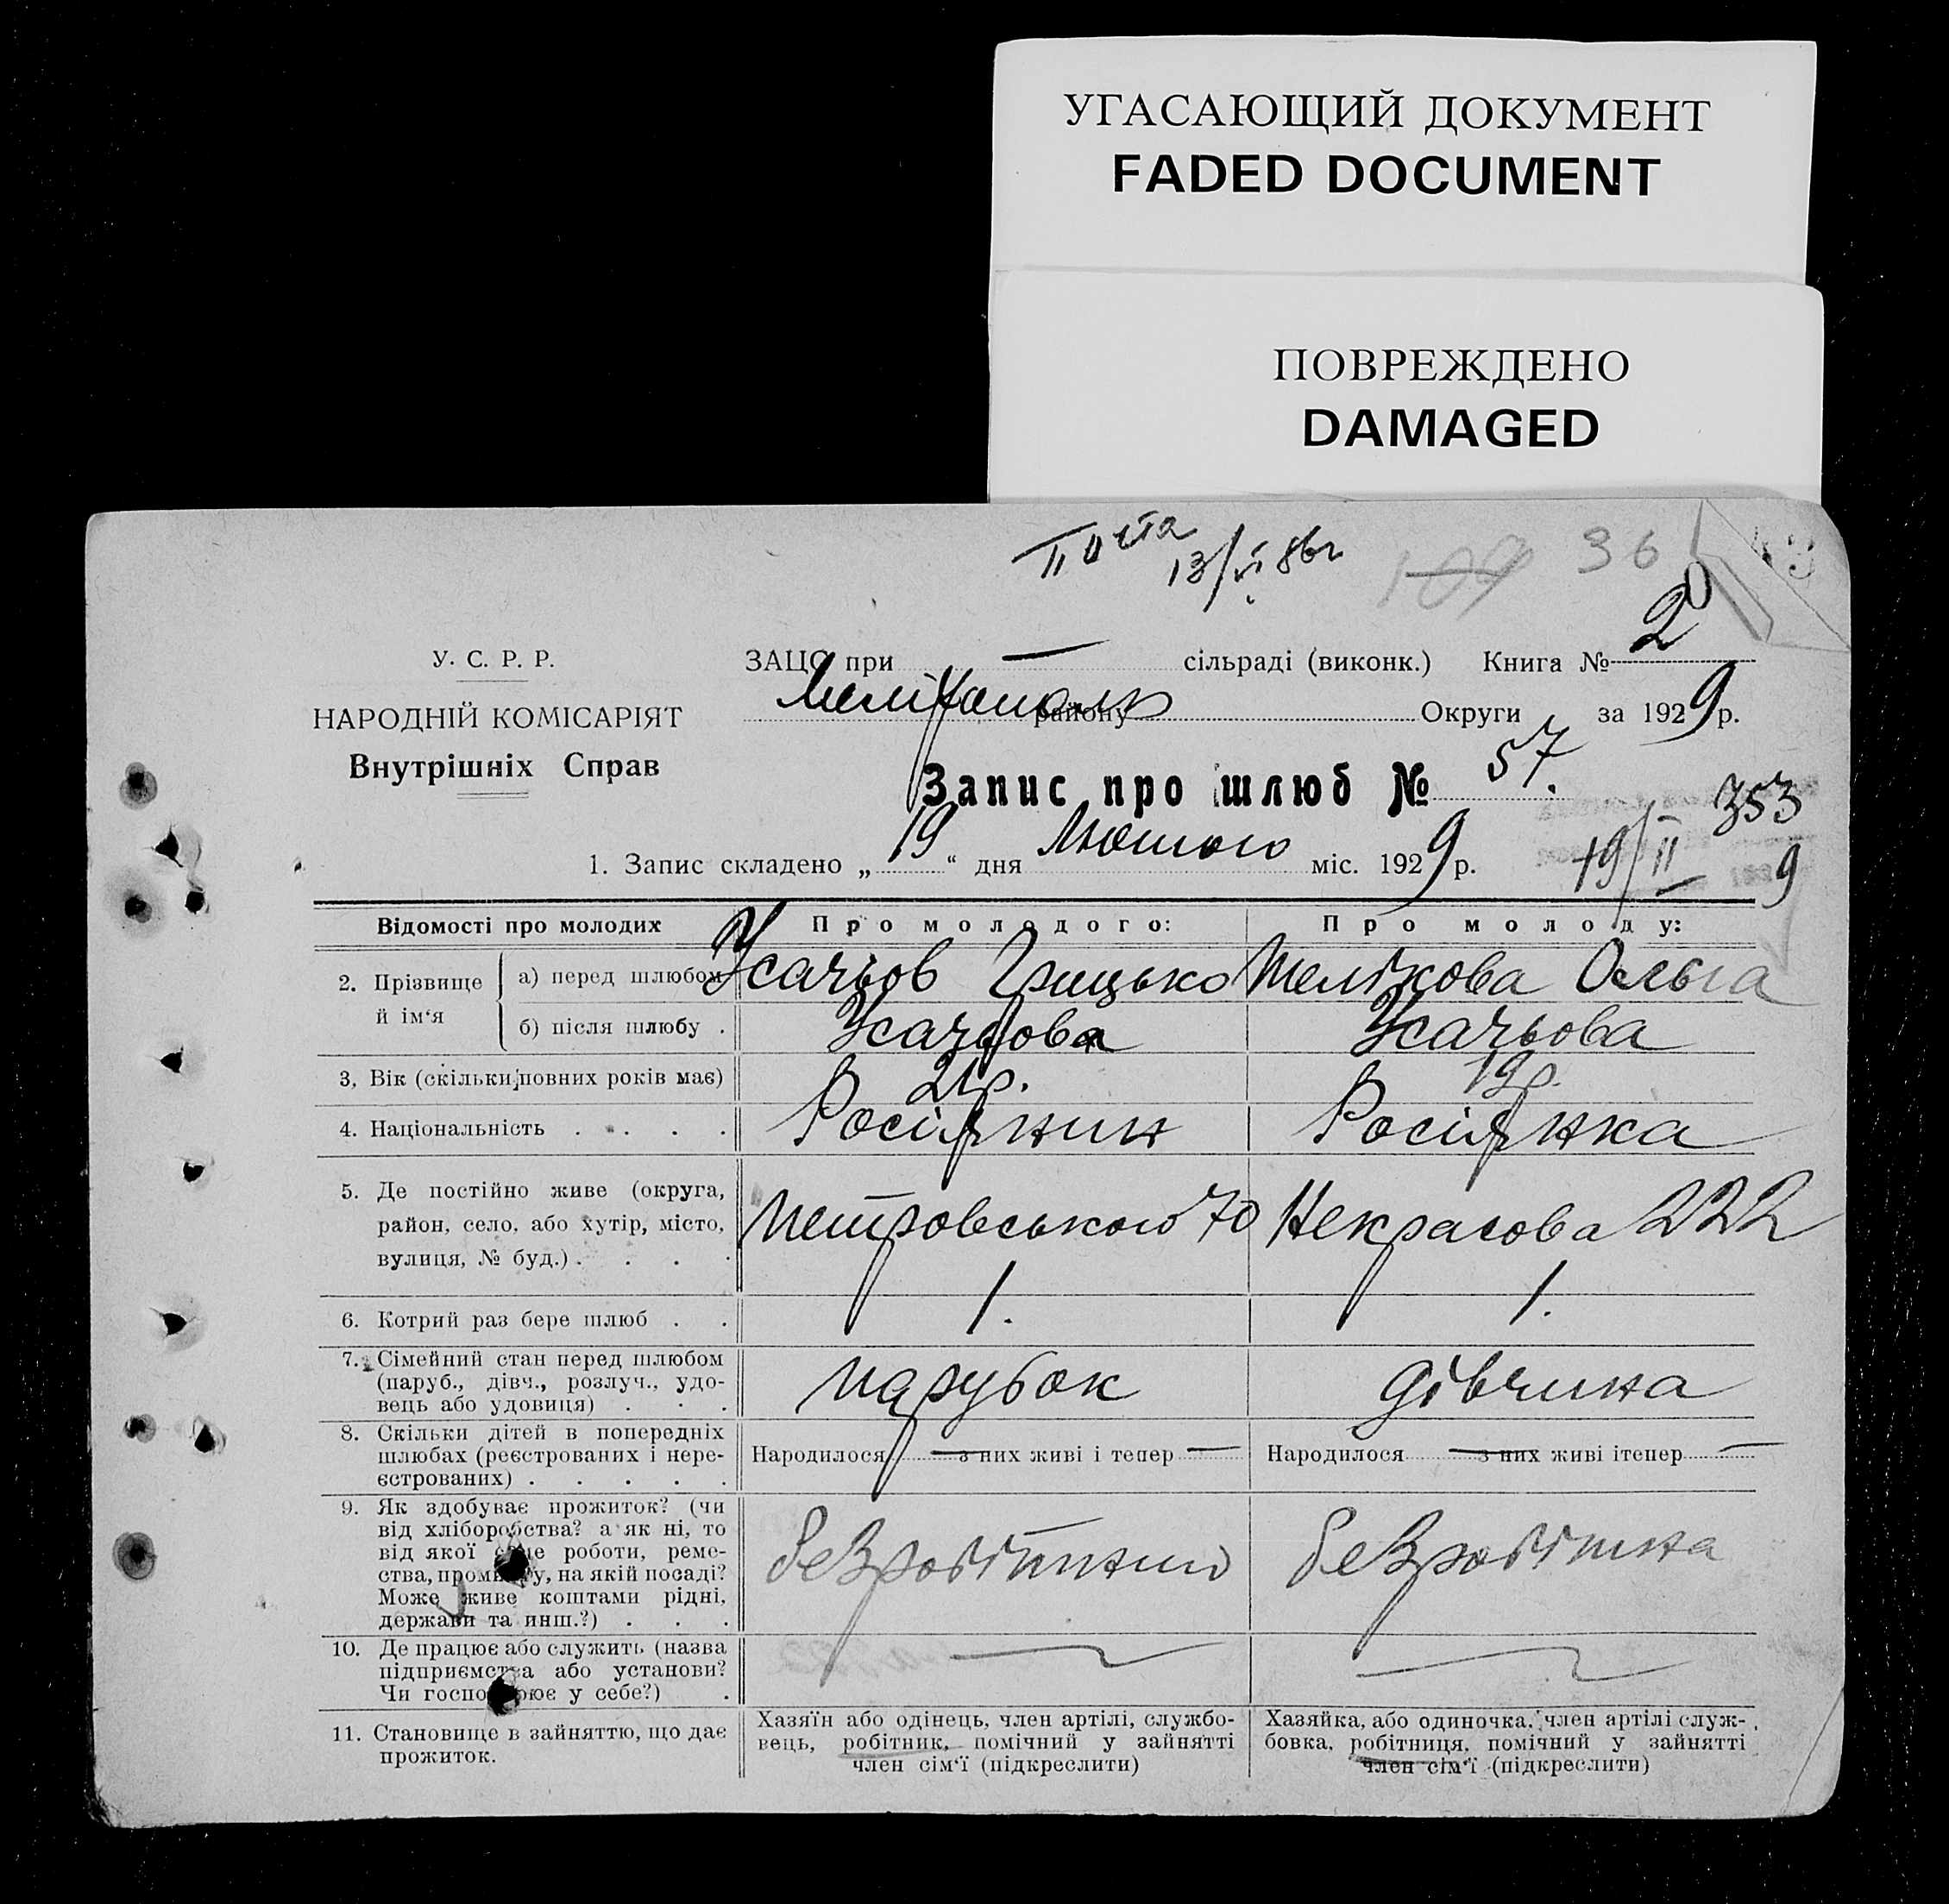 УГАСАЮЩИЙ ДОКУМЕНТ
FADED DOCUMENT
ПОВРЕЖДЕНО
DAMAGED
13/VI 86г
109 36
У. С. Р. Р.
НАРОДНІЙ КОМІСАРІЯТ
Внутрішніх Справ
ЗАЦС при — сільраді (виконк.) Книга № 2
Мелітополь району Округи за 1929 р.
Запис про шлюб № 57.
353
1. Запис складено „19“ дня Лютого міс. 1929 р.
19/II 9
Відомості про молодих Про молодого: Про молоду:
2. Прізвище й ім‘я
а) перед шлюбом Усачьов Грицько Шелікова Ольга
б) після шлюбу . Усачьова Усачьова
3, Вік (скільки повних років має) 21р. 19р.
4. Національність . . . . . Росіянин Росіянка
5. Де постійно живе (округа,
район, село, або хутір, місто,
вулиця, № буд.) . . . .
Петровського 70 Некрасова 222
6. Котрий раз бере шлюб . . 1. 1.
7. Сімейний стан перед шлюбом
(паруб., дівч., розлуч., удо-
вець або удовиця) . . .
парубок дівчина
8. Скільки дітей в попередніх
шлюбах (реєстрованих і нере-
єстрованих) . . . . .
Народилося — з них живі і тепер — Народилося — з них живі ітепер —
9. Як здобуває прожиток? (чи
від хліборобства? а як ні, то
від якої роботи, реме-
ства, на якій посаді?
Може живе коштами рідні,
держави та инш.?) . . .
безробітний безробітна
10. Де працює або служить (назва
підприємства або установи?
Чи у себе?) .
11. Становище в зайняттю, що дає
прожиток.
Хазяїн або одінець, член артілі, службо-
вець, робітник, помічний у зайнятті
член сім‘ї (підкреслити)
Хазяйка, або одиночка, член артілі служ-
бовка, робітниця, помічний у зайнятті
член сім‘ї (підкреслити)